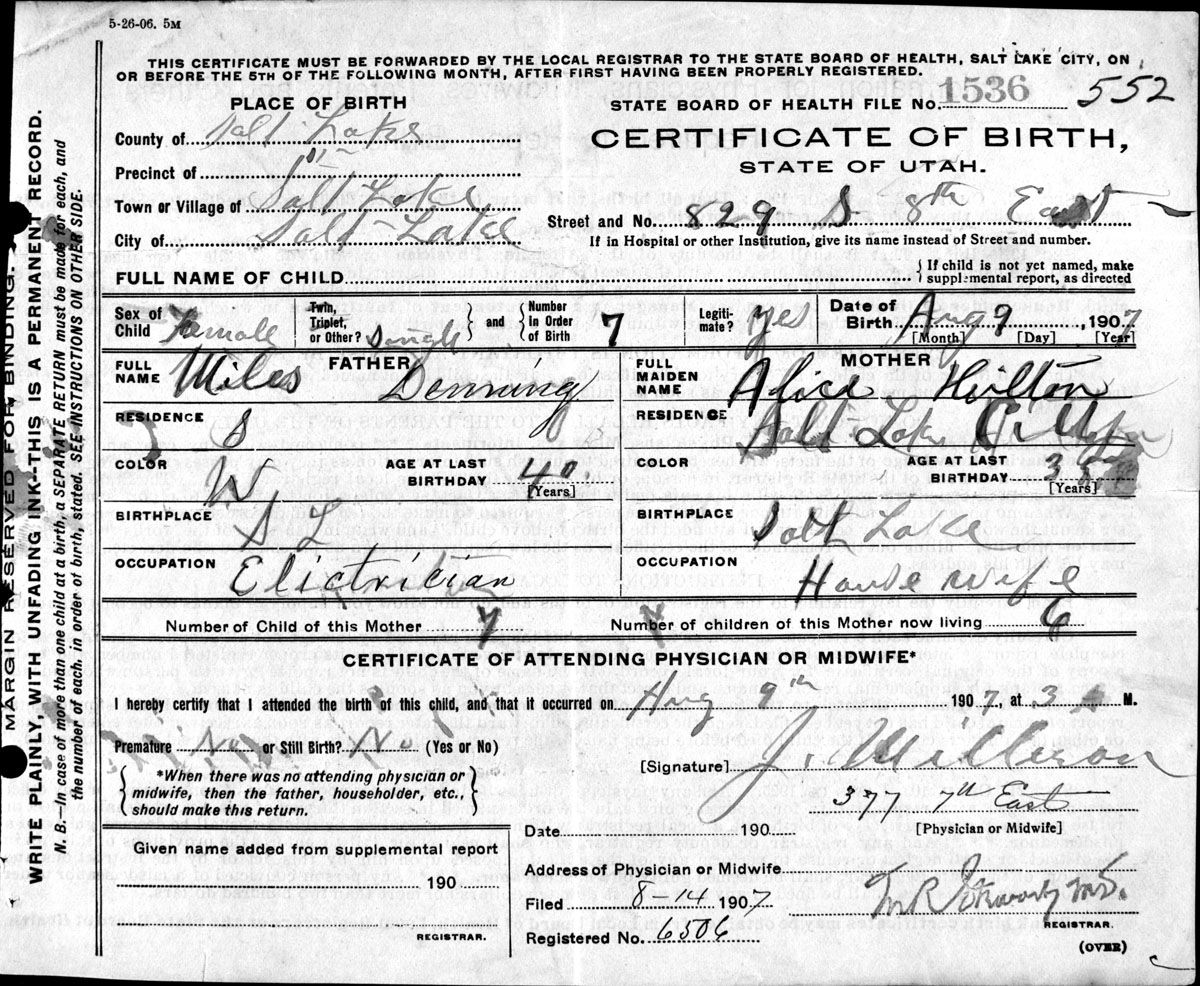 5-26-06. 5M
THIS CERTIFICATE MUST BE FORWARDED BY THE LOCAL REGISTRAR TO THE STATE BOARD OF HEALTH, SALT LAKE CITY, ON
OR BEFORE THE 5TH OF THE FOLLOWING MONTH, AFTER FIRST HAVING BEEN PROPERLY REGISTERED.
MARGIN RESERVED FOR BINDING.
WRITE PLAINLY, WITH UNFADING INK--THIS IS A PERMANENT RECORD.
N. B.—In case of more than one child at a birth, a SEPARATE RETURN must be made for each, and
the number of each, in order of birth, stated. SEE INSTRUCTIONS ON OTHER SIDE.
PLACE OF BIRTH
County of Salt Lake
Precinct of
Town or Village of Salt Lake
City of Salt Lake
STATE BOARD OF HEALTH FILE No. 1536 552
CERTIFICATE OF BIRTH,
STATE OF UTAH.
Street and No. 829 S. 8th East
If in Hospital or other Institution, give its name instead of Street and number.
FULL NAME OF CHILD
If child is not yet named, make
supplemental report, as directed
Sex of Child Female
Twin, Triplet, or Other? Single
and Number in Order of Birth 7
Legiti- mate? Yes
Date of Birth Aug 9, 1907
[Month] [Day] [Year]
FATHER
FULL NAME Miles Denning
RESIDENCE S
COLOR W
AGE AT LAST BIRTHDAY 40
[Years]
BIRTHPLACE S L
OCCUPATION Elictrician
MOTHER
FULL MAIDEN NAME Alice Hilton
RESIDENCE Salt Lake City
COLOR
AGE AT LAST BIRTHDAY
[Years]
BIRTHPLACE Salt Lake
OCCUPATION House wife
Number of Child of this Mother 7
Number of children of this Mother now living 6
CERTIFICATE OF ATTENDING PHYSICIAN OR MIDWIFE*
I hereby certify that I attended the birth of this child, and that it occurred on Aug 9th 1907, at 3 A M.
Premature No or Still Birth? No (Yes or No)
*When there was no attending physician or
midwife, then the father, householder, etc.,
should make this return.
[Signature] J.
377 7th East
Date 190
[Physician or Midwife]
Given name added from supplemental report
190
REGISTRAR.
Address of Physician or Midwife
Filed 8-14 1907
M.D.
REGISTRAR.
Registered No. 6506
(OVER)